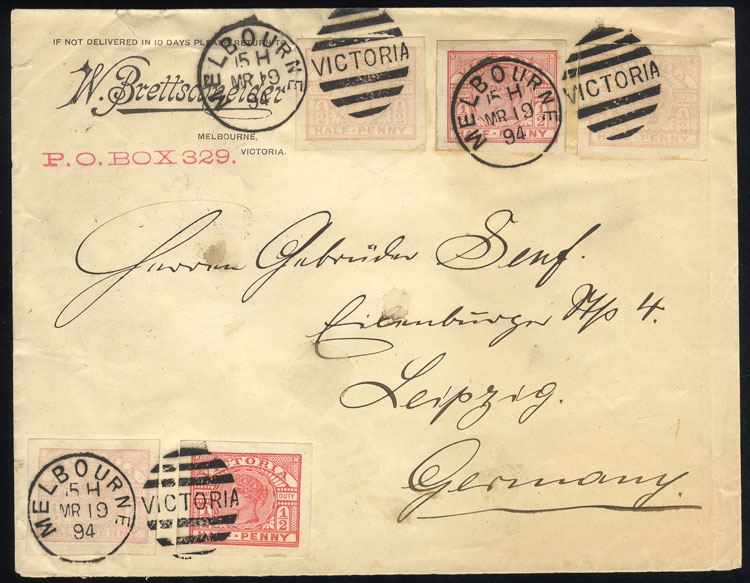 IF NOT DELIVERED IN 10 DAYS PLEASE RETURN TO
W. Brettschneider
MELBOURNE,
VICTORIA.
P.O. BOX 329.
MELBOURNE
15 H
MR 19
94
VICTORIA
1/2 1/2
HALF-PENNY
MELBOURNE
15 H
MR 19
94
1/2
HALF-PENNY
VICTORIA
1/2
HALF-PENNY
Herren Gebrüder Senf.
Eilenburger Str 4.
Leipzig.
Germany.
MELBOURNE
15 H
MR 19
94
VICTORIA
VICTORIA
DUTY
1/2
HALF-PENNY